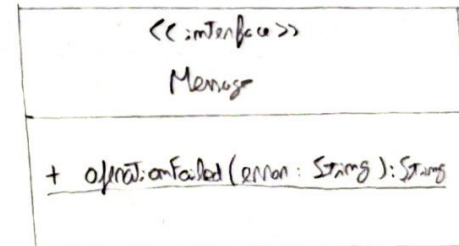 <<interface>>
Message
+ operationFailed(error: String): String